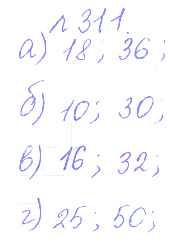 л 311.
а) 18; 36;
б) 10; 30;
в) 16; 32;
г) 25; 50;